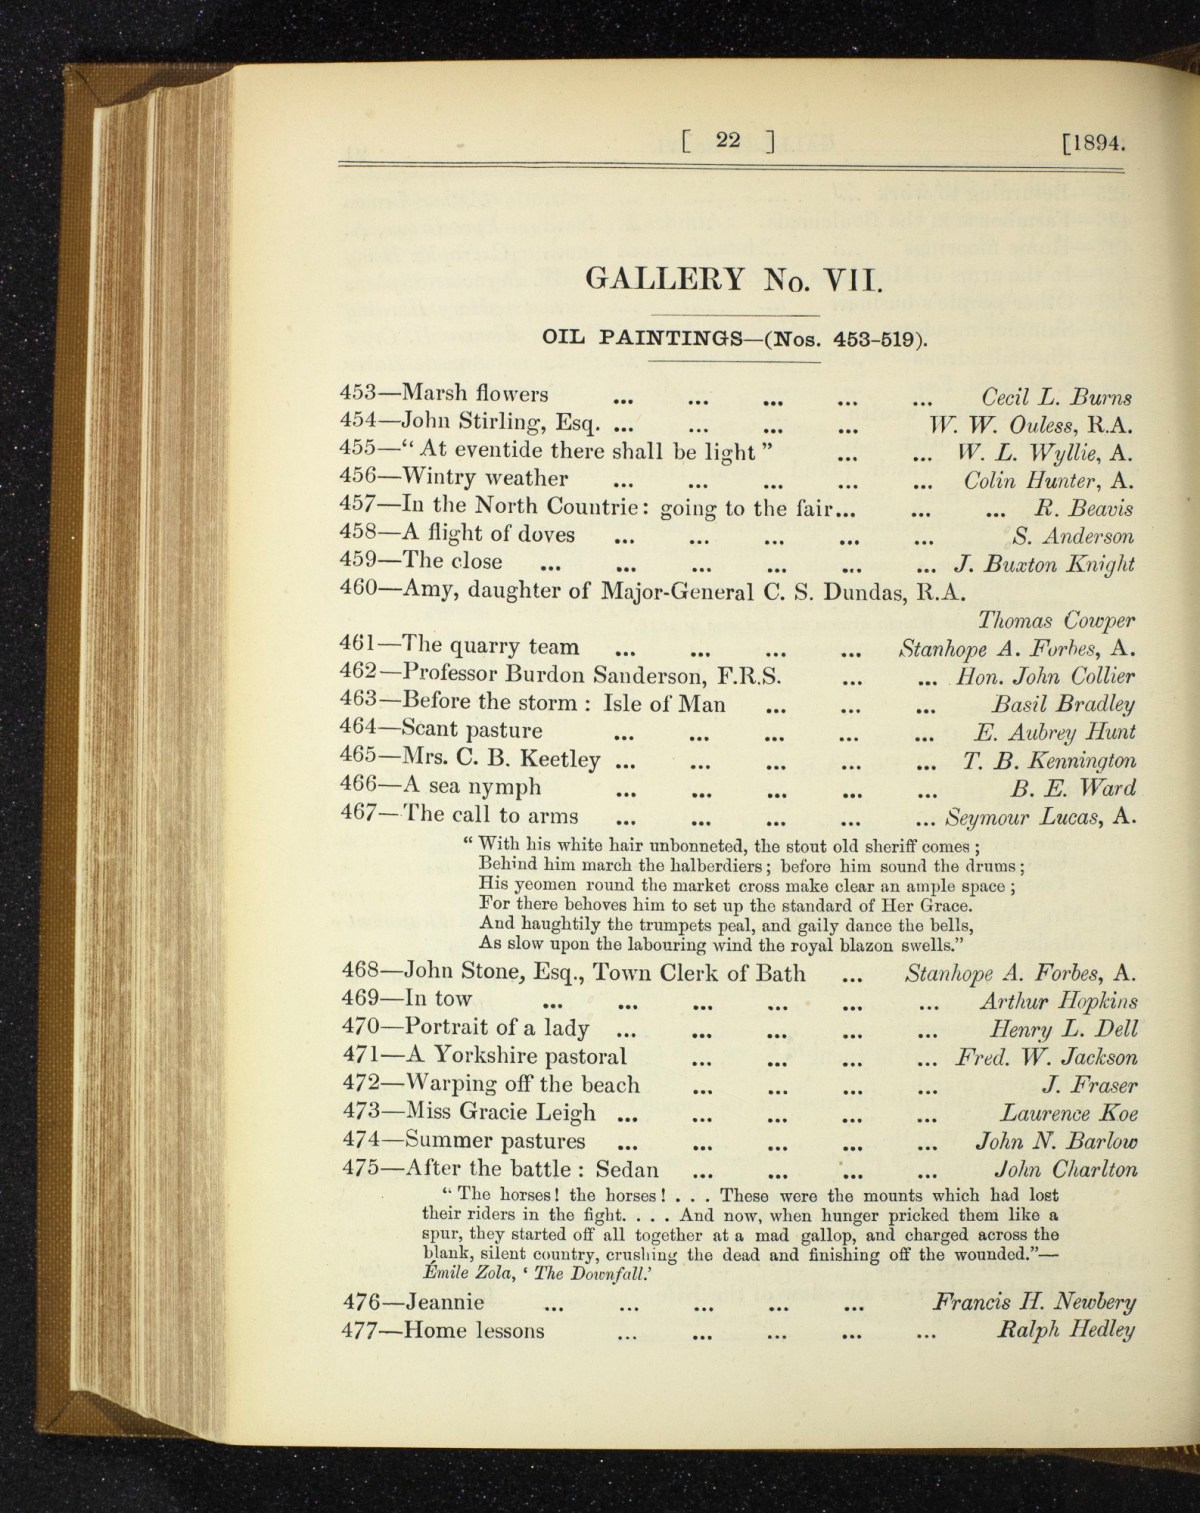 [ 22 ] [1894.
GALLERY No. VII.
OIL PAINTINGS—(Nos. 453-519).
453—Marsh flowers ... ... ... ... ... Cecil L. Burns
454—John Stirling, Esq. ... ... ... ... W. W. Ouless, R.A.
455—“ At eventide there shall be light ” ... ... W. L. Wyllie, A.
456—Wintry weather ... ... ... ... ... Colin Hunter, A.
457—In the North Countrie: going to the fair... ... ... R. Beavis
458—A flight of doves ... ... ... ... ... S. Anderson
459—The close ... ... ... ... ... ... J. Buxton Knight
460—Amy, daughter of Major-General C. S. Dundas, R.A.
Thomas Cowper
461—The quarry team ... ... ... ... Stanhope A. Forbes, A.
462—Professor Burdon Sanderson, F.R.S. ... ... Hon. John Collier
463—Before the storm : Isle of Man ... ... ... Basil Bradley
464—Scant pasture ... ... ... ... ... E. Aubrey Hunt
465—Mrs. C. B. Keetley ... ... ... ... ... T. B. Kennington
466—A sea nymph ... ... ... ... ... B. E. Ward
467—The call to arms ... ... ... ... ... Seymour Lucas, A.
“ With his white hair unbonneted, the stout old sheriff comes ;
Behind him march the halberdiers ; before him sound the drums ;
His yeomen round the market cross make clear an ample space ;
For there behoves him to set up the standard of Her Grace.
And haughtily the trumpets peal, and gaily dance the bells,
As slow upon the labouring wind the royal blazon swells.”
468—John Stone, Esq., Town Clerk of Bath ... Stanhope A. Forbes, A.
469—In tow ... ... ... ... ... ... Arthur Hopkins
470—Portrait of a lady ... ... ... ... ... Henry L. Dell
471—A Yorkshire pastoral ... ... ... ... Fred. W. Jackson
472—Warping off the beach ... ... ... ... J. Fraser
473—Miss Gracie Leigh ... ... ... ... ... Laurence Koe
474—Summer pastures ... ... ... ... ... John N. Barlow
475—After the battle : Sedan ... ... ... ... John Charlton
“ The horses! the horses! . . . These were the mounts which had lost
their riders in the fight. . . . And now, when hunger pricked them like a
spur, they started off all together at a mad gallop, and charged across the
blank, silent country, crushing the dead and finishing off the wounded.”—
Émile Zola, ‘ The Downfall.’
476—Jeannie ... ... ... ... ... Francis H. Newbery
477—Home lessons ... ... ... ... ... Ralph Hedley